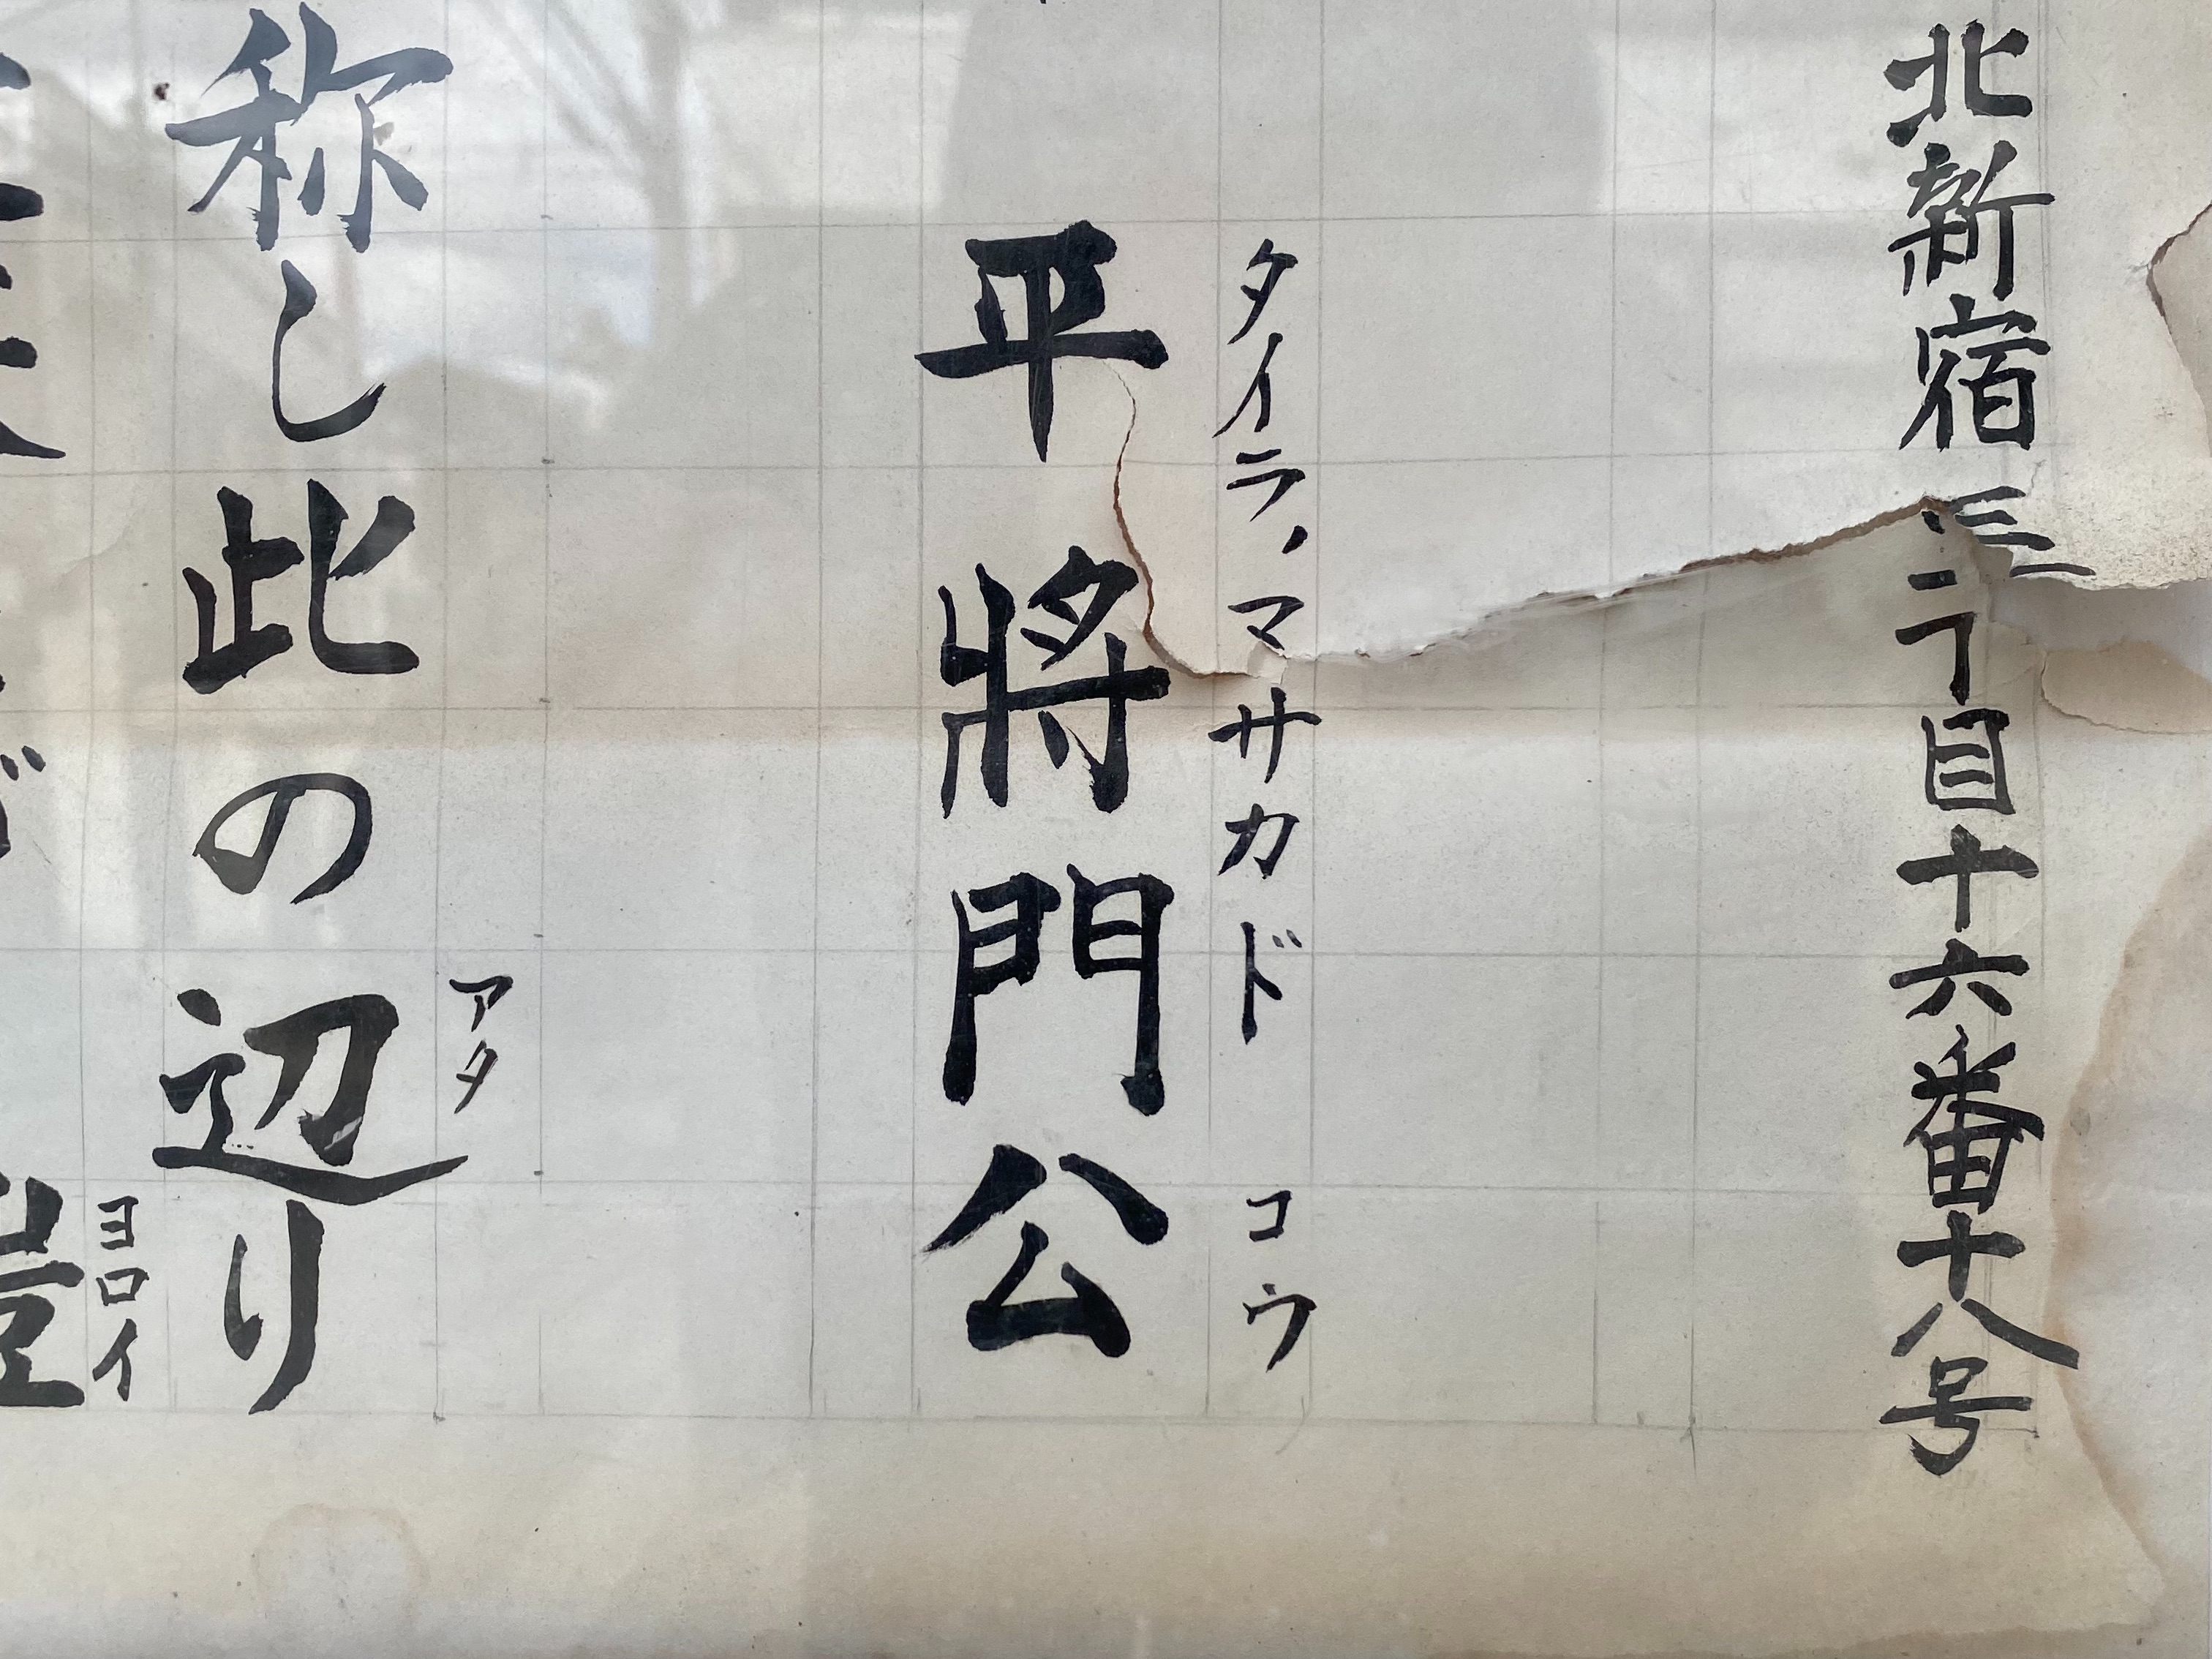 北新宿三丁目十六番十八号
タイラノマサカド コウ
平將門公
アタ
称し此の辺り
ヨロイ